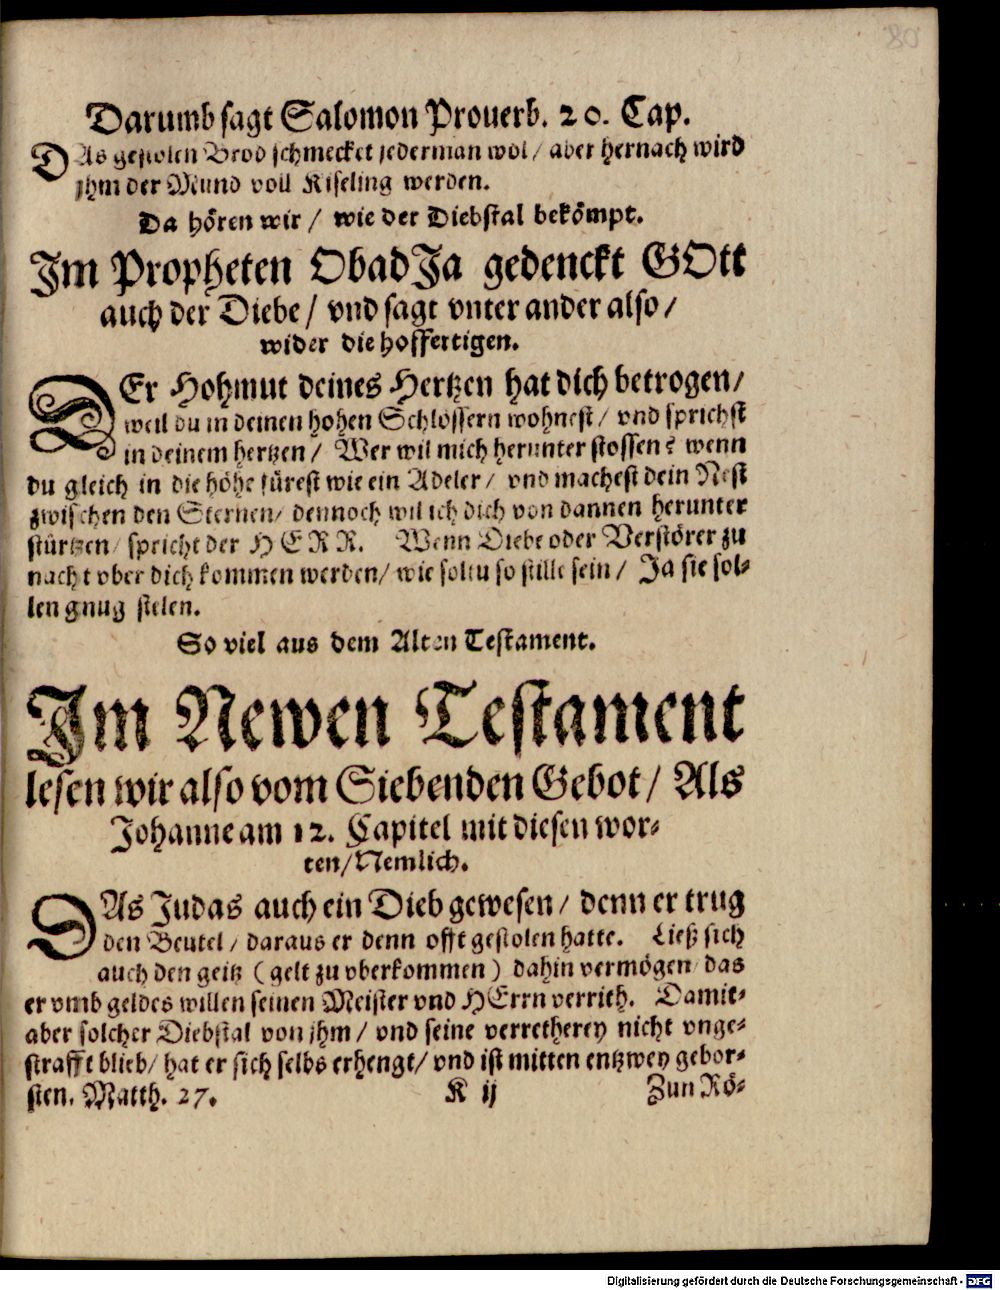 80
Darumb sagt Salomon Prouerb. 20. Cap.
DAs gestolen Brod schmecket jederman wol / aber hernach wird
jhm der Mund voll Kiseling werden.
Da hören wir / wie der Diebstal bekömpt.
Im Propheten ObadJa gedenckt GOtt
auch der Diebe / vnd sagt vnter ander also /
wider die hoffertigen.
DEr Hohmut deines Hertzen hat dich betrogen /
weil du in deinen hohen Schlössern wohnest / vnd sprichst
in deinem hertzen / Wer wil mich herunter stossen? wenn
du gleich in die höhe fürest wie ein Adeler / vnd machest dein Nest
zwischen den Sternen / dennoch wil ich dich von dannen herunter
stürtzen / spricht der HERR. Wenn Diebe oder Verstörer zu
nacht vber dich kommen werden / wie soltu so stille sein / Ja sie sol-
len gnug stelen.
So viel aus dem Alten Testament.
Im Newen Testament
lesen wir also vom Siebenden Gebot / Als
Johanne am 12. Capitel mit diesen wor-
ten / Nemlich.
DAs Judas auch ein Dieb gewesen / denn er trug
den Beutel / daraus er denn offt gestolen hatte. Ließ sich
auch den geitz ( gelt zu vberkommen ) dahin vermögen / das
er vmb geldes willen seinen Meister vnd HErrn verrith. Damit-
aber solcher Diebstal von jhm / vnd seine verretherey nicht vnge-
strafft blieb / hat er sich selbs erhengt / vnd ist mitten entzwey gebor-
sten. Matth. 27.
K ij
Zun Rö-
Digitalisierung gefördert durch die Deutsche Forschungsgemeinschaft - DFG